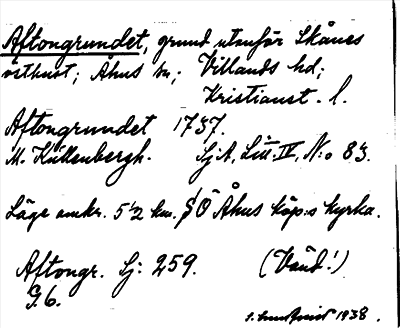 Aftongrundet, grund utanför Skånes
östkust; Åhus sn; Villands hd;
Kristianst. l.
Aftongrundet 1737.
M. Küllenbergh. Sj.A, Litt. IV, N:o 83.
Läge omkr. 5½ km. SÖ Åhus köp:s kyrka.
Aftongr. Sj: 259. (Vänd!)
G. 6.
1938.